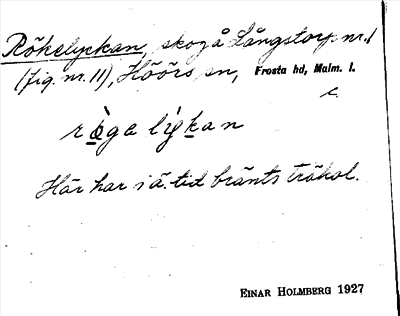 Rökelyckan, skog å Långstorp nr. 1
(fig. nr. 11), Höörs sn, Frosta hd, Malm. l.
rö̀ga lỳkan
Här har i ä. tid bränts träkol.
EINAR HOLMBERG 1927